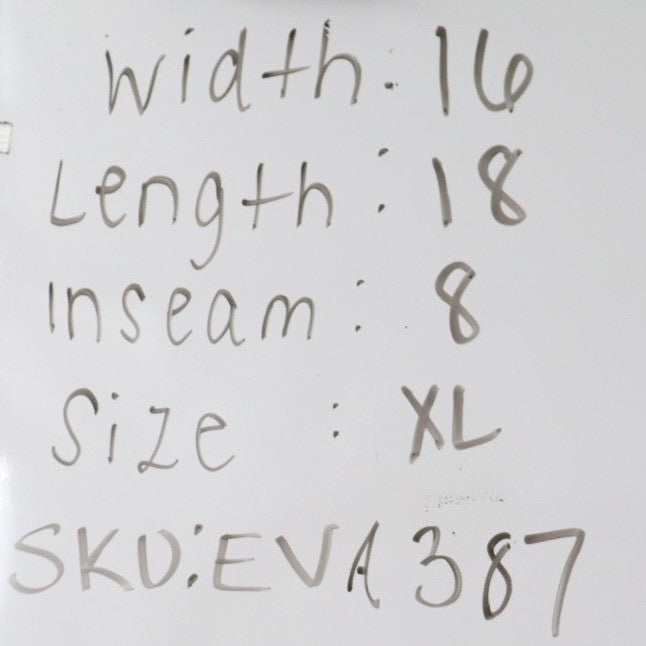 Width: 16
Length: 18
Inseam: 8
Size : XL
SKU: EVA387